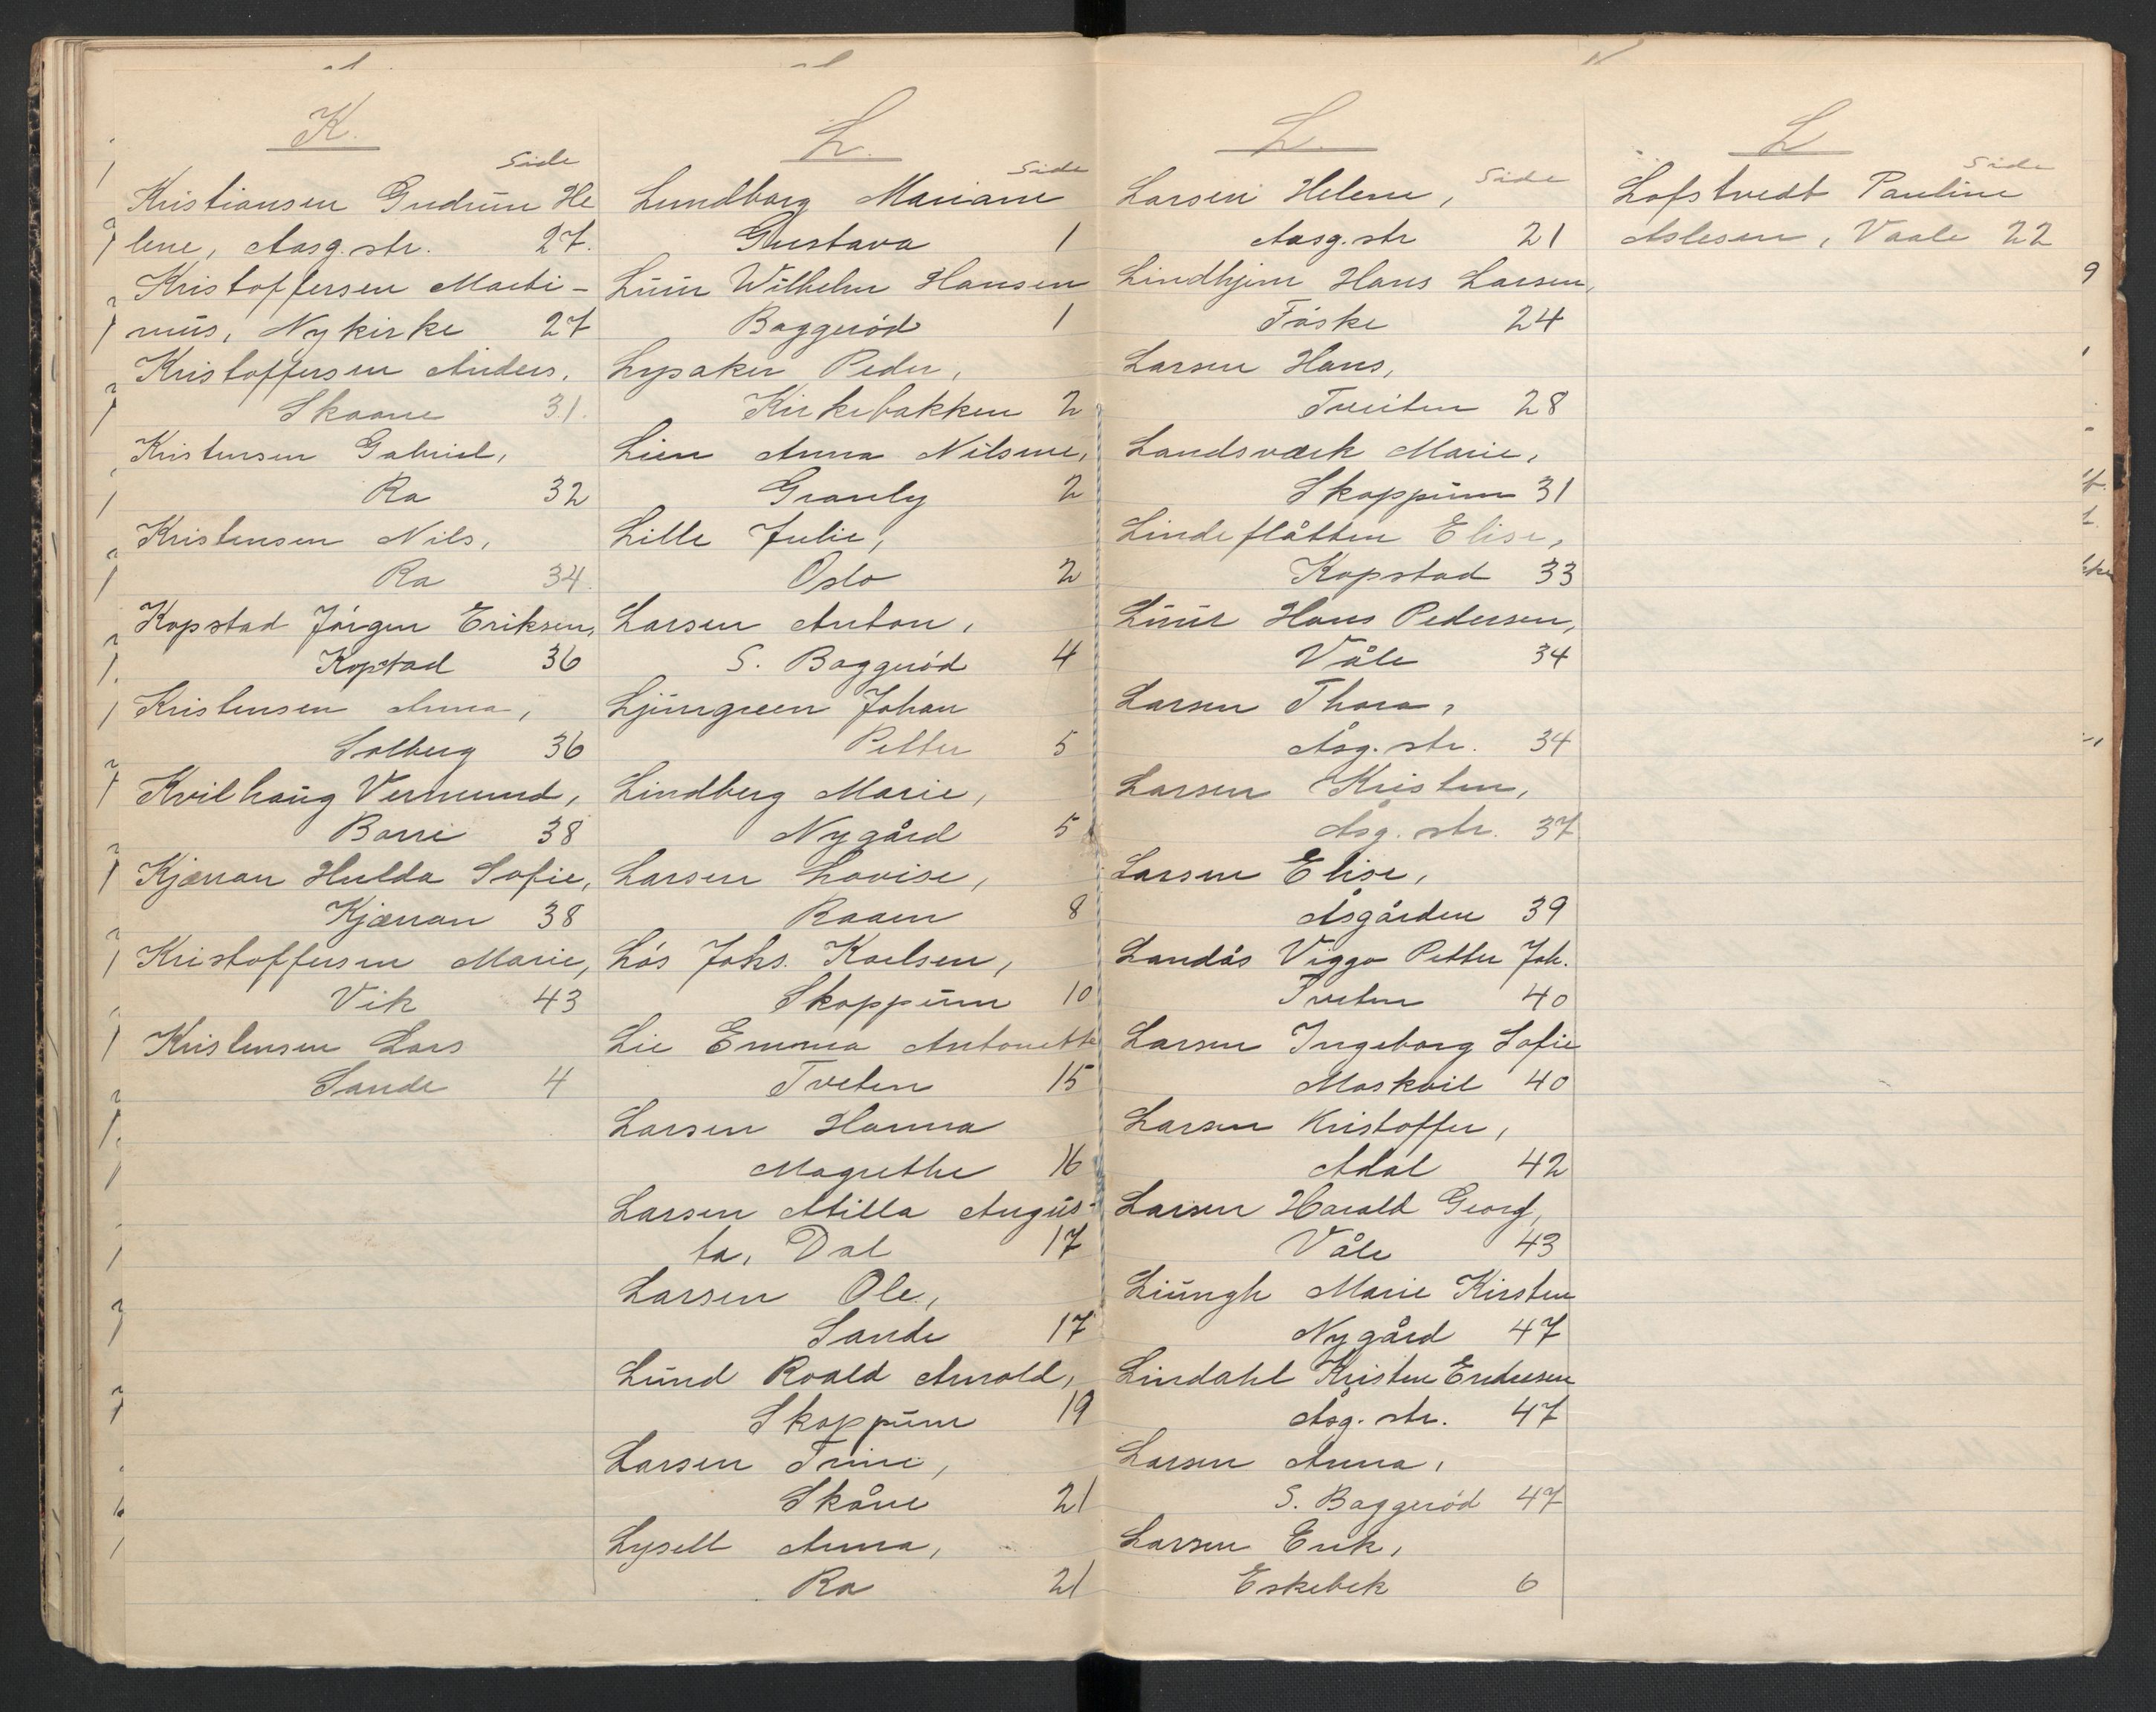 K.
Side
Kristiansen Gudrun He
lene, Aasg. str. 27.
Kristoffersen Marti-
nus, Nykirke 27
Kristoffersen Anders,
Skaane 31.
Kristensen Gabriel,
Ra 32
Kristensen Nils,
Ra 34.
Kopstad Jörgen Eriksen,
Kopstad 36
Kristensen Anna,
Solberg 36
Kvilhaug Vermund,
Borre 38
Kjærran Hulda Sofie,
Kjærran 38
Kristoffersen Marie,
Vik 43
Kristensen Lars
Sande 4
L.
Side
Lundborg Mariane
Gustava 1
Luur Wilhelm Hansen
Baggeröd 1
Lysaker Peder,
Kirkebakken 2
Lien Anna Nilsine,
Granly 2
Lille Julie,
Oslo 2
Larsen Anton,
S. Baggeröd 4
Ljungreen Johan
Petter 5
Lindberg Marie,
Nygård 5
Larsen Lovise,
Raaen 8
Lös Johs. Karlsen,
Skoppum 10
Lie Emma Antonette
Tveten 15
Larsen Hanna
Magrethe 16
Larsen Milla Augus-
ta, Dal 17
Larsen Ole,
Sande 17
Lund Roald Arnold,
Skoppum 19
Larsen Trine,
Skåne 21
Lysell Anna,
Ra 21
L.
Side
Larsen Helene,
Aasg. str 21
Lindhjem Hans Larsen,
Töske 24
Larsen Hans,
Tveiten 28
Landsværk Marie,
Skoppum 31
Lindeflåtten Elise,
Kopstad 33
Luur Hans Pedersen,
Våle 34
Larsen Thora,
Åsg. str. 34
Larsen Kristen,
Åsg. str. 37
Larsen Elise,
Åsgården 39
Landås Viggo Petter Joh.
Tveten 40
Larsen Ingeborg Sofie
Moskvil 40
Larsen Kristoffer,
Adal 42
Larsen Harald Georg,
Våle 43
Liungh Marie Kirsten
Nygård 47
Lindahl Kristen Endresen
Åsg. str. 47
Larsen Anna,
S. Baggeröd 47
Larsen Erik,
Eskebek 6
L
Side
Lofstvedt Pauline
Aslesen, Vaale 22